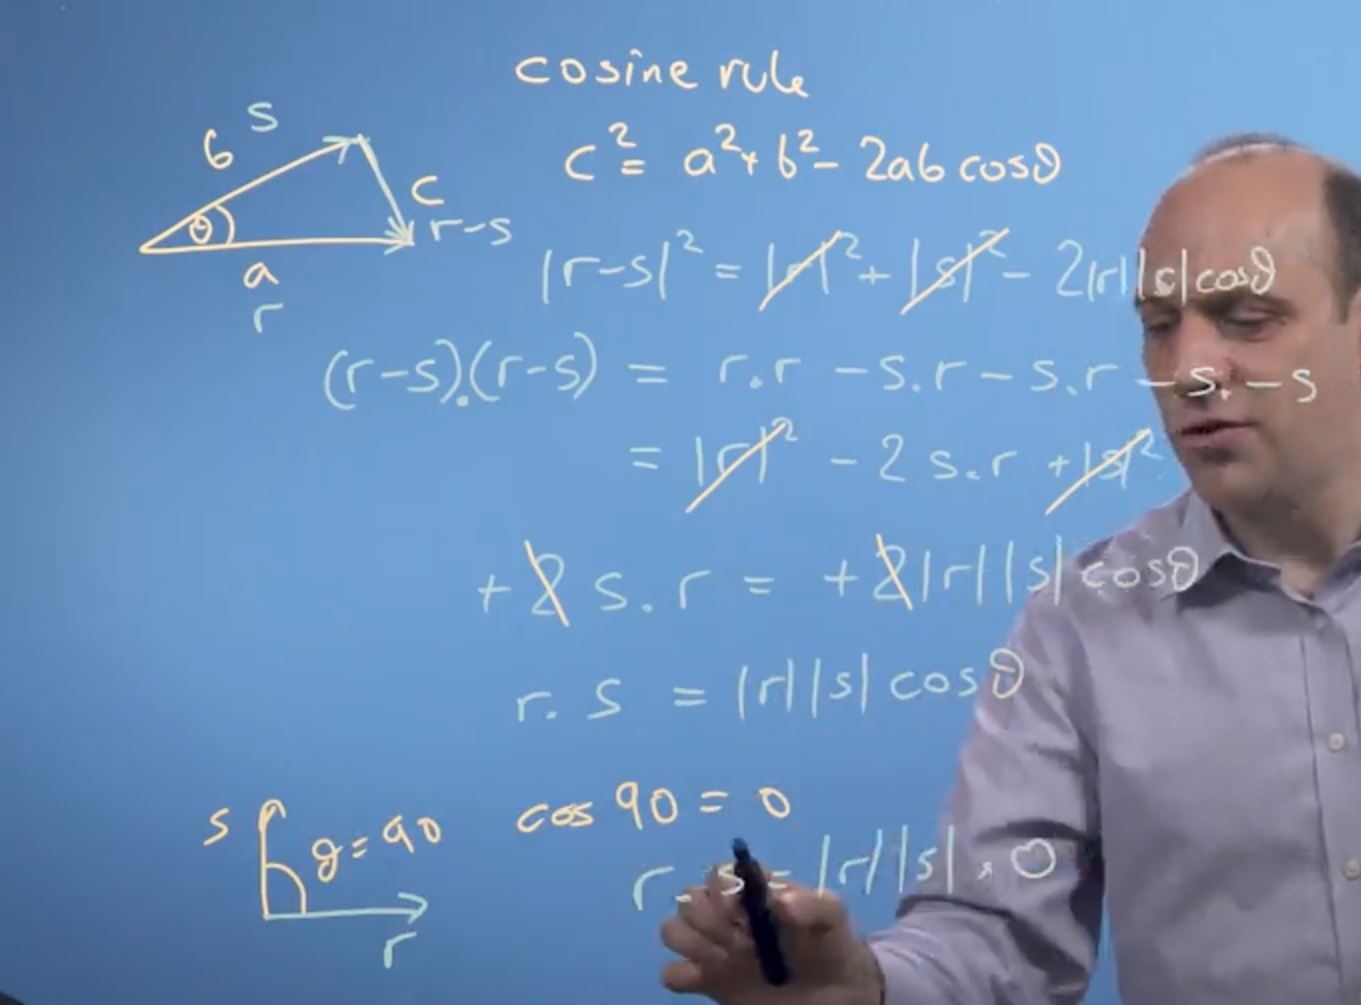 cosine rule
c² = a² + b² - 2ab cosθ
s
b
θ
c
r-s
a
r
|r-s|² = |r|² + |s|² - 2|r||s|cosθ
(r-s).(r-s) = r.r - s.r - s.r - s. - s
= |r|² - 2 s.r + |s|²
+2 s.r = +2|r||s|cosθ
r.s = |r||s| cosθ
s
θ = 90
r
cos 90 = 0
r.s = |r||s| . 0